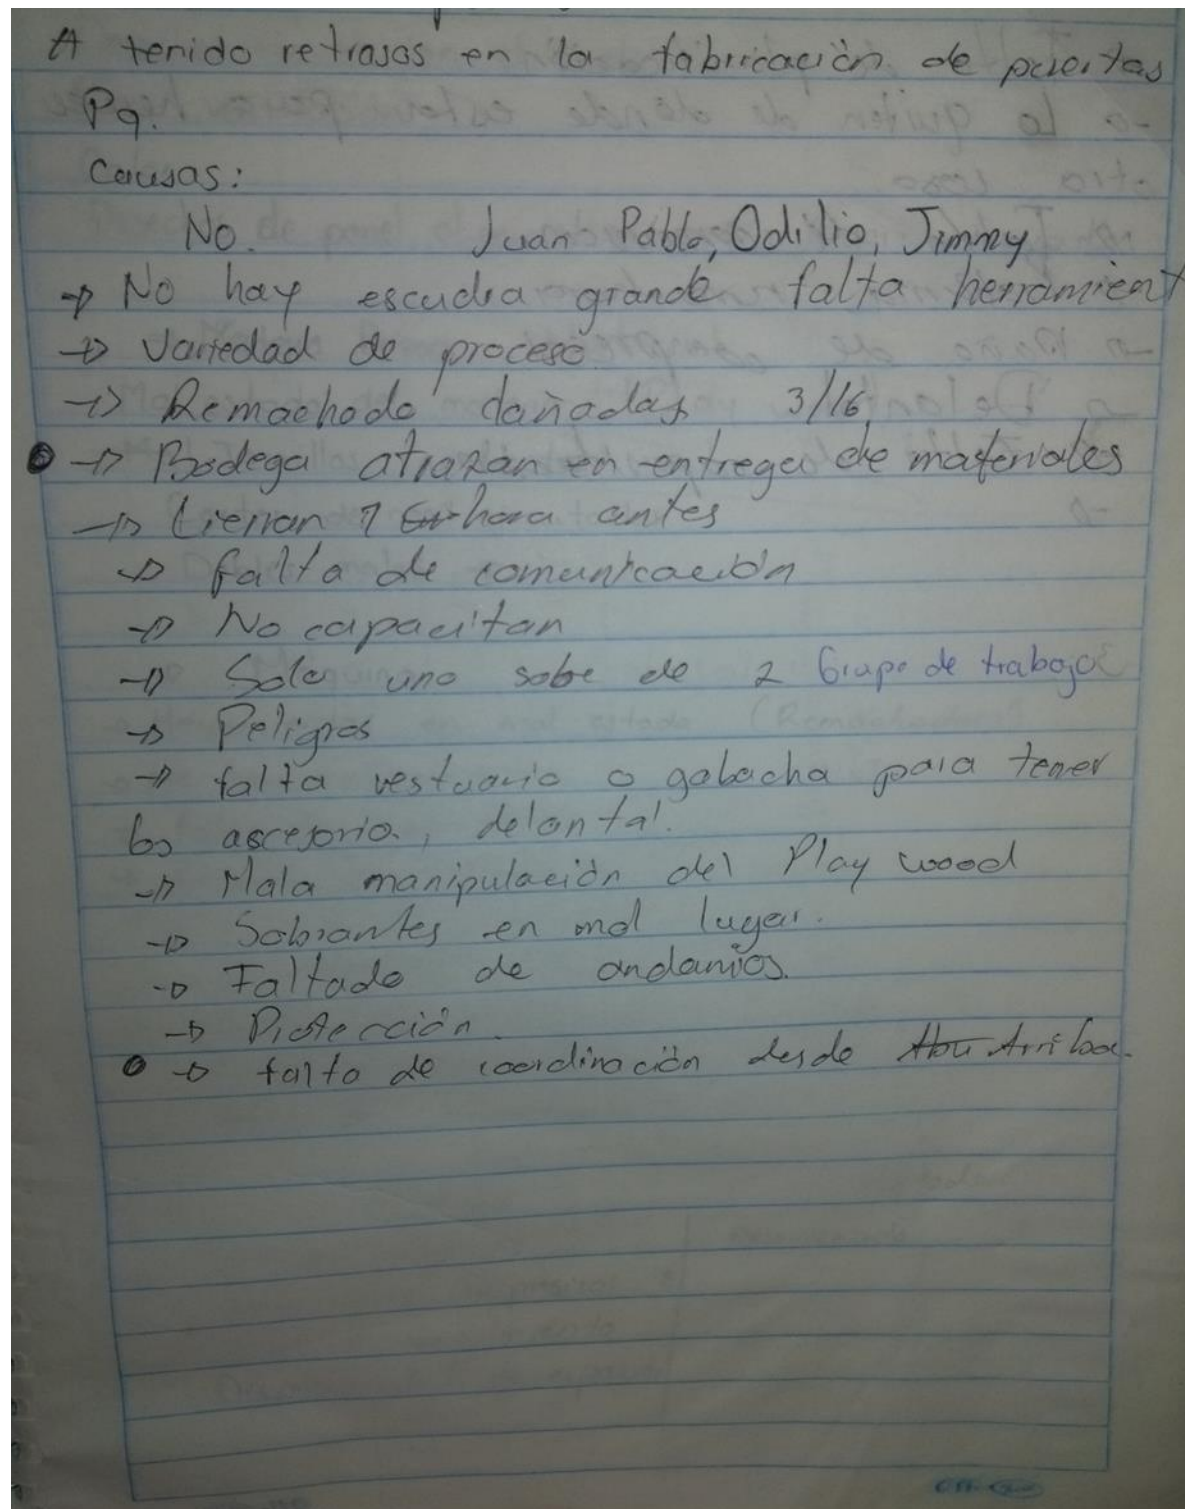 A tenido retrasos en la fabricación de puertas
Pq.
Causas:
No. Juan Pablo, Odilio, Jimmy
→ No hay escudra grande falta herramient
→ Variedad de proceso
→ Remachado dañadas 3/16
→ Bodega atrazan en entrega de materiales
→ Cierran 1 hora antes
→ falta de comunicación
→ No capacitan
→ Solo uno sabe de 2 Grupo de trabajo
→ Peligros
→ falta vestuario o gabacha para tener
los ascesorio, delantal.
→ Mala manipulación del Play wood
→ Sobrantes en mal lugar.
→ Faltado de andamios.
→ Protección.
→ falta de coordinación desde Arriba.